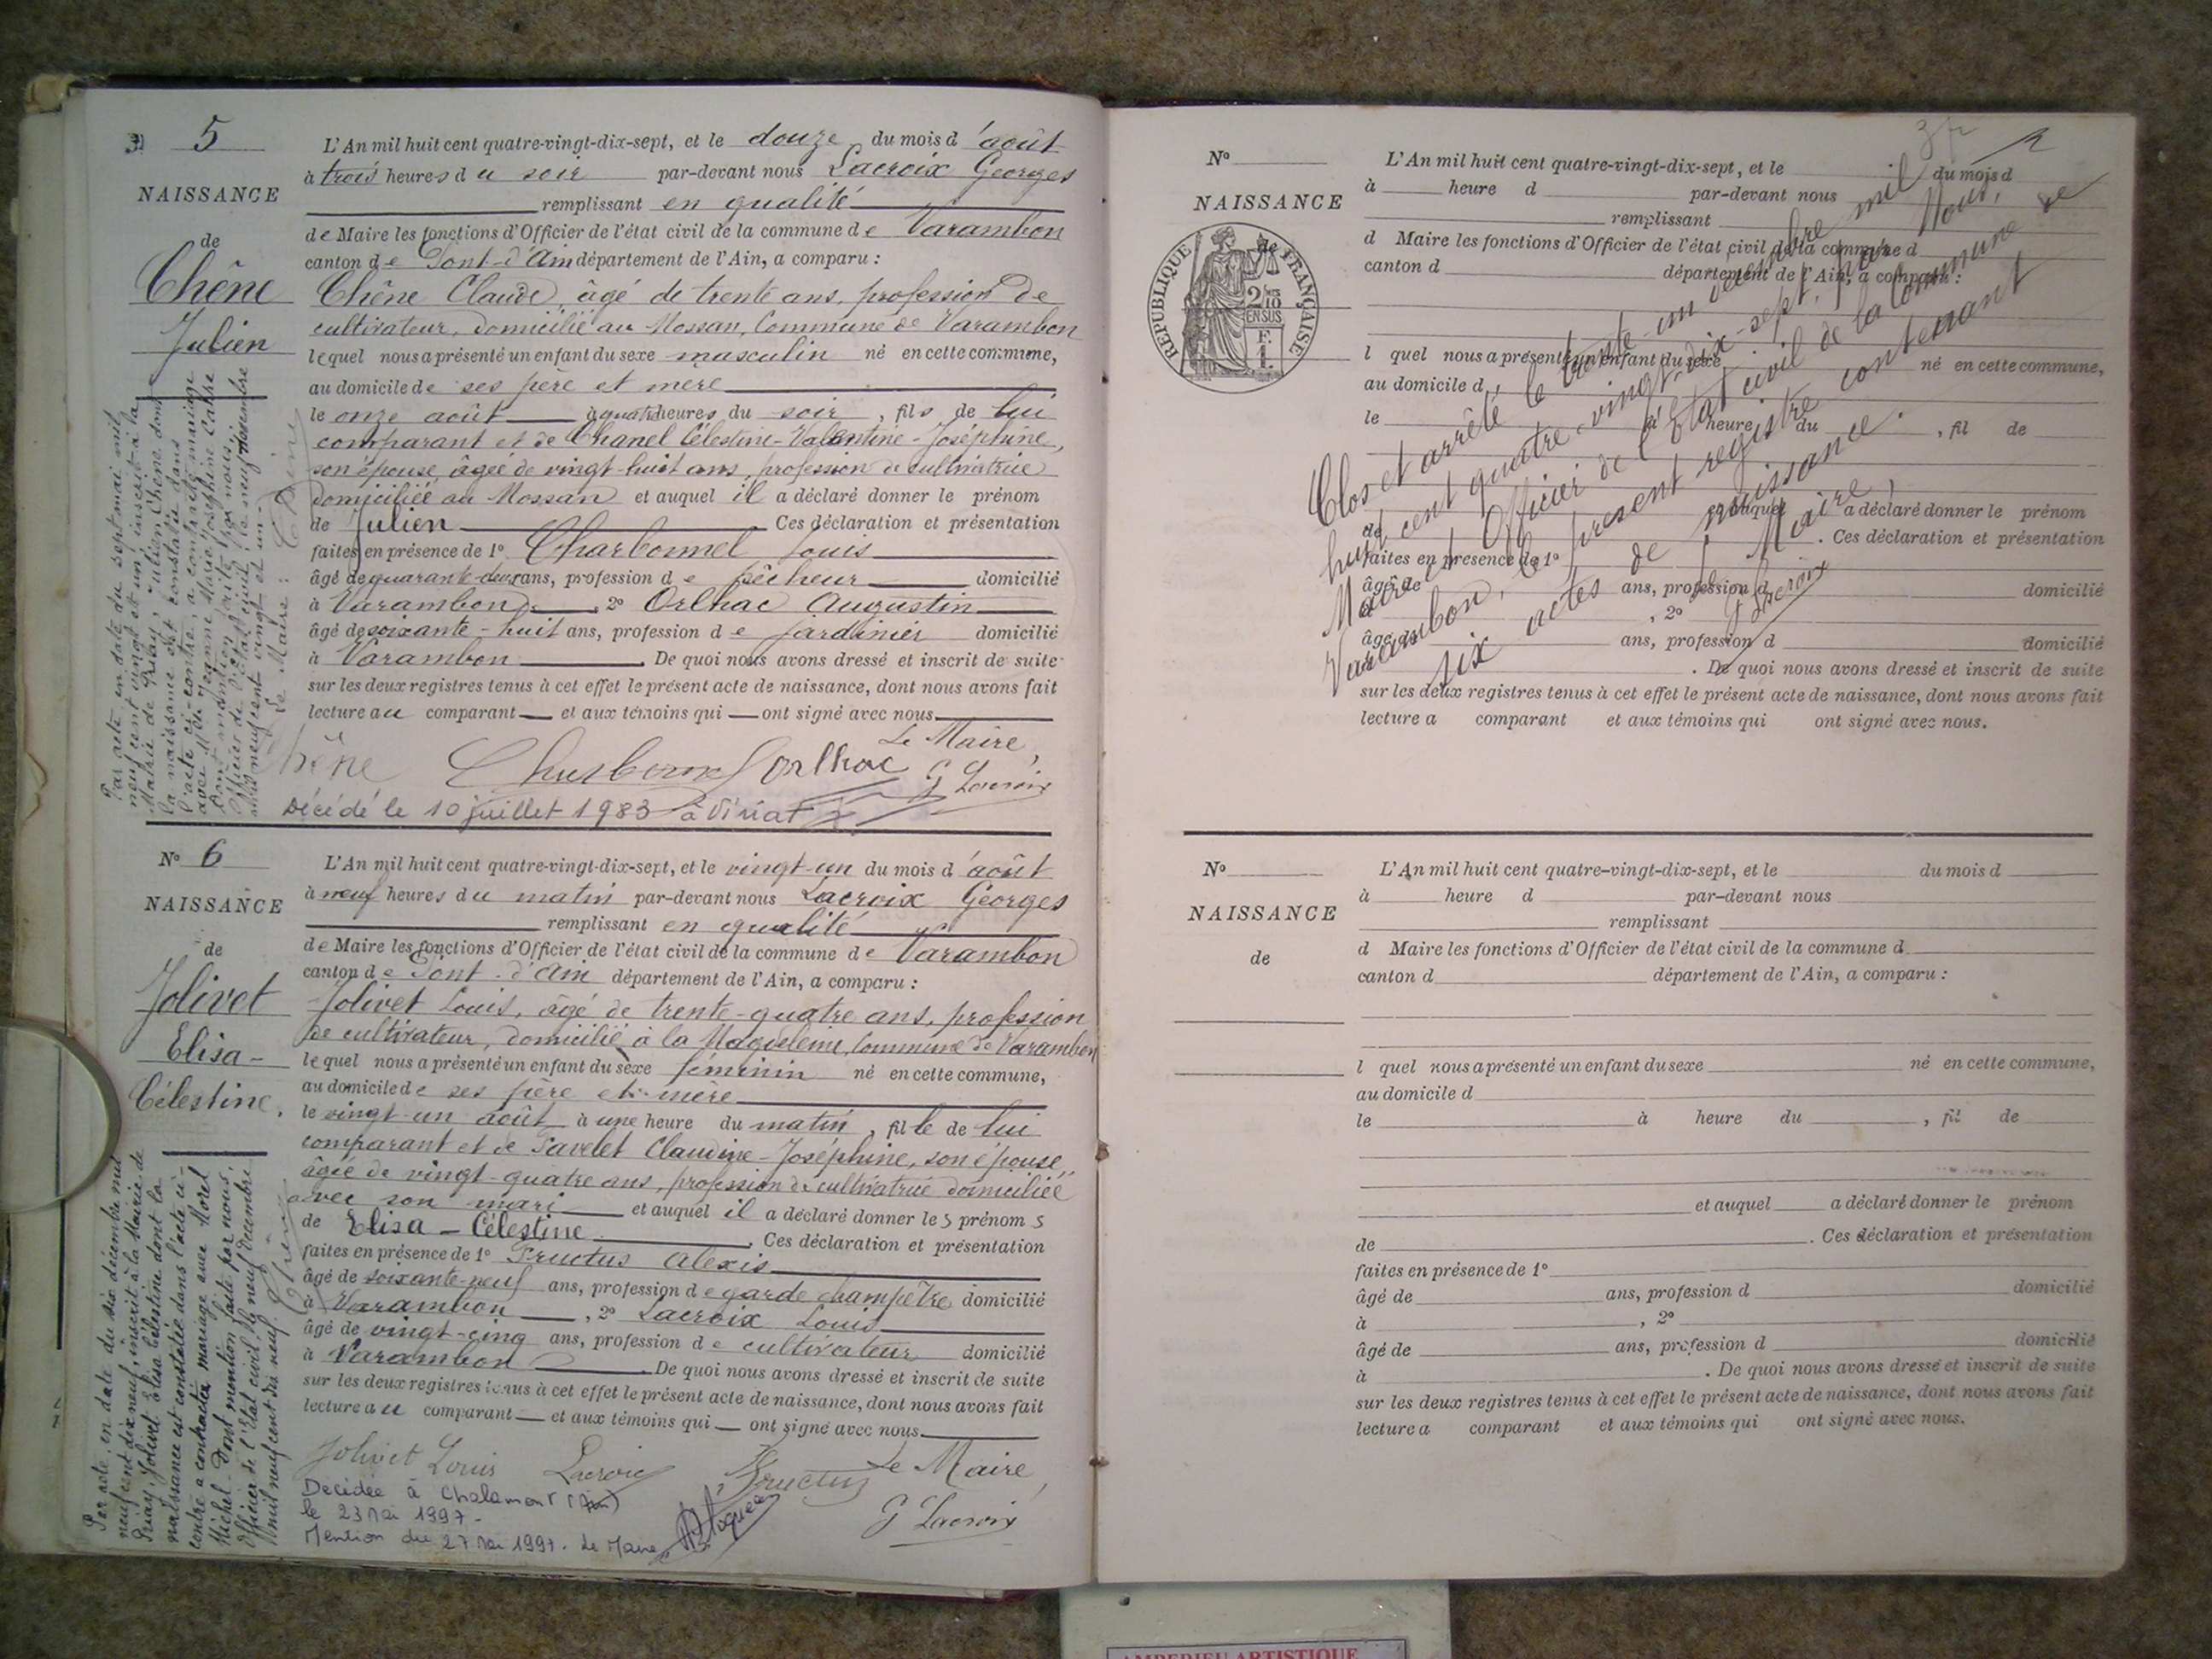 5
NAISSANCE
de
Chêne
Julien
L'An mil huit cent quatre-vingt-dix-sept, et le douze du mois d'août
à trois heures du soir par-devant nous Lacroix Georges
remplissant en qualité
de Maire les fonctions d'Officier de l'état civil de la commune de Varambon
canton de Pont-d'Ain département de l'Ain, a comparu :
Chêne Claude, âgé de trente ans, profession de
cultivateur, domicilié au Mossan, Commune de Varambon
lequel nous a présenté un enfant du sexe masculin né en cette commune,
au domicile de ses père et mère
le onze août à quatre heures du soir, fils de lui
comparant et de Chanel Célestine-Valentine-Joséphine,
son épouse, âgée de vingt-huit ans, profession de cultivatrice
domiciliée au Mossan et auquel il a déclaré donner le prénom
de Julien Ces déclaration et présentation
faites en présence de 1° Charbonnel Louis
âgé de quarante-deux ans, profession de pêcheur domicilié
à Varambon, 2° Orlhac Augustin
âgé de soixante-huit ans, profession de jardinier domicilié
à Varambon. De quoi nous avons dressé et inscrit de suite
sur les deux registres tenus à cet effet le présent acte de naissance, dont nous avons fait
lecture au comparant et aux témoins qui ont signé avec nous.
Le Maire,
Orlhac G Lacroix
Décédé le 10 juillet 1983 à Viriat
Par acte en date du sept mai mil
neuf cent vingt et un, inscrit à la
Mairie de Priay, Julien Chêne, dont
la naissance est constatée dans
l'acte ci-contre, a contracté mariage
avec Jeanne Marie Joséphine
Dont mention faite par nous,
Officier de l'état civil, le neuf
mil neuf cent vingt et un.
Le Maire :
N° 6
NAISSANCE
de
Jolivet
Elisa-
Célestine.
L'An mil huit cent quatre-vingt-dix-sept, et le vingt-un du mois d'août
à neuf heures du matin par-devant nous Lacroix Georges
remplissant en qualité
de Maire les fonctions d'Officier de l'état civil de la commune de Varambon
canton de Pont-d'Ain département de l'Ain, a comparu :
Jolivet Louis, âgé de trente-quatre ans, profession
de cultivateur, domicilié à la Magdeleine, Commune de Varambon
lequel nous a présenté un enfant du sexe féminin né en cette commune,
au domicile de ses père et mère
le vingt-un août à une heure du matin, fille de lui
comparant et de Pavelet Claudine-Joséphine, son épouse,
âgée de vingt-quatre ans, profession de cultivatrice domiciliée
avec son mari et auquel il a déclaré donner les prénoms
de Elisa-Célestine. Ces déclaration et présentation
faites en présence de 1° Fructus Alexis
âgé de soixante-neuf ans, profession de garde champêtre domicilié
à Varambon, 2° Lacroix Louis
âgé de vingt-cinq ans, profession de cultivateur domicilié
à Varambon. De quoi nous avons dressé et inscrit de suite
sur les deux registres tenus à cet effet le présent acte de naissance, dont nous avons fait
lecture au comparant et aux témoins qui ont signé avec nous.
Jolivet Louis Lacroix Fructus Le Maire,
G Lacroix
Décédée à Chalamont (Ain)
le 23 Mai 1997.
Mention du 27 Mai 1997. Le Maire
Par acte en date du six décembre mil
neuf cent dix neuf, inscrit à la Mairie de
Priay, Jolivet Elisa Célestine dont la
naissance est constatée dans l'acte ci-
contre a contracté mariage avec Morel
Michel. Dont mention faite par nous,
Officier de l'état civil, le neuf décembre
mil neuf cent dix neuf.
N°
NAISSANCE
de
RÉPUBLIQUE FRANÇAISE
2/10
EN SUS
F.
1.
L'An mil huit cent quatre-vingt-dix-sept, et le du mois d
à heure d par-devant nous
remplissant
d Maire les fonctions d'Officier de l'état civil de la commune d
canton d département de l'Ain, a comparu :
l quel nous a présenté un enfant du sexe né en cette commune,
au domicile d
le à heure du , fil de
et auquel a déclaré donner le prénom
de . Ces déclaration et présentation
faites en présence de 1°
âgé de ans, profession d domicilié
à , 2°
âgé de ans, profession d domicilié
à . De quoi nous avons dressé et inscrit de suite
sur les deux registres tenus à cet effet le présent acte de naissance, dont nous avons fait
lecture a comparant et aux témoins qui ont signé avec nous.
Clos et arrêté le trente-un décembre mil
huit cent quatre-vingt-dix-sept, par Nous,
Maire et Officier de l'Etat civil de la Commune de
Varambon, le présent registre contenant
six actes de naissance.
Le Maire,
G Lacroix
N°
NAISSANCE
de
L'An mil huit cent quatre-vingt-dix-sept, et le du mois d
à heure d par-devant nous
remplissant
d Maire les fonctions d'Officier de l'état civil de la commune d
canton d département de l'Ain, a comparu :
l quel nous a présenté un enfant du sexe né en cette commune,
au domicile d
le à heure du , fil de
et auquel a déclaré donner le prénom
de . Ces déclaration et présentation
faites en présence de 1°
âgé de ans, profession d domicilié
à , 2°
âgé de ans, profession d domicilié
à . De quoi nous avons dressé et inscrit de suite
sur les deux registres tenus à cet effet le présent acte de naissance, dont nous avons fait
lecture a comparant et aux témoins qui ont signé avec nous.
AMBERIEU ARTISTIQUE